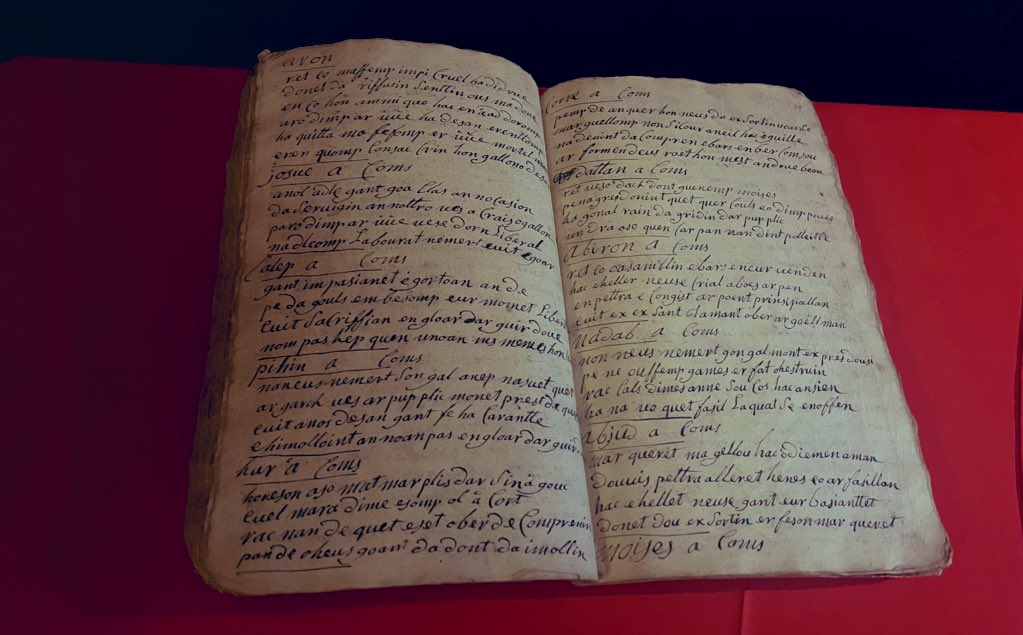 aron
ret eo ma ffemp impi Cruel ha didrue
donet da riffusin Senttin ous ma doue
en eo hon ammique hac en aad doromp
aro dimp ar iüie ha desan erenttdomp
ha quitta ma fesomp er iüie mortel
eren quomp Consac Crin hon gallono
josue a Coms
anol adle gant goa llas an nocasion
da Seruigin annottro ues a Craiso gallon
paro dimp ar iüie uese dorn Liberal
na dleomp Labourat nemert euit e gloar
Calep a Coms
gant im pasianet e gortoan an de
pe da gouls em besomp eur momet Liber
euit Sacriffian en gloar dar guir doue
nompas hep quen unoan ms memes hon
pihin a Coms
nan eus nement Son gal anep nas uet quet
ar garch ues ar pup plic monet prest de
euit anos desan gant fe ha Carantte
e himolloint an noan pas en gloar dar guir
hur a Coms
henes on aso mat mar plis dar Sina gouc
euel mara dime esomp ol a Cort
rac nan de quet eset ober de Comprenin
pan de oheus goant da dont da imollin
Corre a Coms
pemp de an quer hon neus do ex Sortin
mar guellomp non Silour aneil hac eguille
na deuint da Compren ebars en ber Comsou
ar formen deus roet hon mest an doue beou
dattan a Coms
ret ueso dach dont guenemp moises
pen a gredonint quet quer Couls eo dimp
ha gonal rain da gridin dar pup plic
rin dra ose quen Car pan nan dint pollitic
Abiron a Coms
ret eo oasanillin ebars en eur uenden
hac eheller neuse Crial aboes ar pen
en pettra e Congist ar poent prinsipallan
euit ex ex Sant Clamant ober ar goell man
Nadab a Coms
non neus nement gongal mont ex pres dousi
pe ne ouffemp games er fat chestruin
rac Cals dimes anne Sou Cos hac ansien
ha na uo quet fasil Laquat Se en offen
abjud a Coms
mar queret ma gellou hac ddiemen aman
Douuis pettra alleret henes eo ar fasillan
hac ehellet neuse gant eur basianttet
donet dou ex Sortin er feson mar queret
moises a Coms